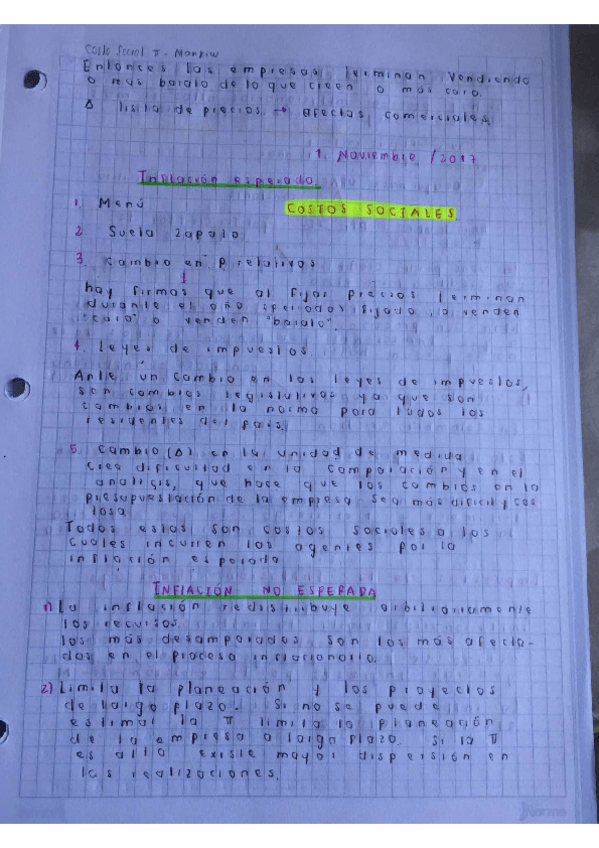 Costo Social π - Mankiw
Entonces las empresas terminan vendiendo
o más barato de lo que creen o más caro.
Δ lista de precios → afectos comerciales
1 Noviembre /2017
Inflación esperada.
1. Menú
COSTOS SOCIALES
2. Suela zapato
3. Cambio en P relativos
↓
hay firmas que al fijar precios terminan
durante el año (periodo) fijado, o venden
"caro" o venden "barato".
4. Leyes de impuestos.
Ante un cambio en las leyes de impuestos,
son cambios ya que son
cambios en la norma para todos los
residentes del país.
5. Cambio (Δ) en la unidad de medida
crea dificultad en la comparación y en el
analisis, que hace que los cambios en la
presupuestación de la empresa sea más dificil y cos
tosa.
Todos estos son costos sociales a los
cuales incurren los agentes por la
inflación esperada
INFLACIÓN NO ESPERADA
1) La inflación redistribuye arbitrariamente
los recursos.
los más desamparados son los más afecta-
dos en el proceso inflacionario.
2) Limita la planeación y los proyectos
de largo plazo. Si no se puede
estimar la π limita la planeación
de la empresa a largo plazo. Si la π
es alta existe mayor dispersión en
las realizaciones.
norma